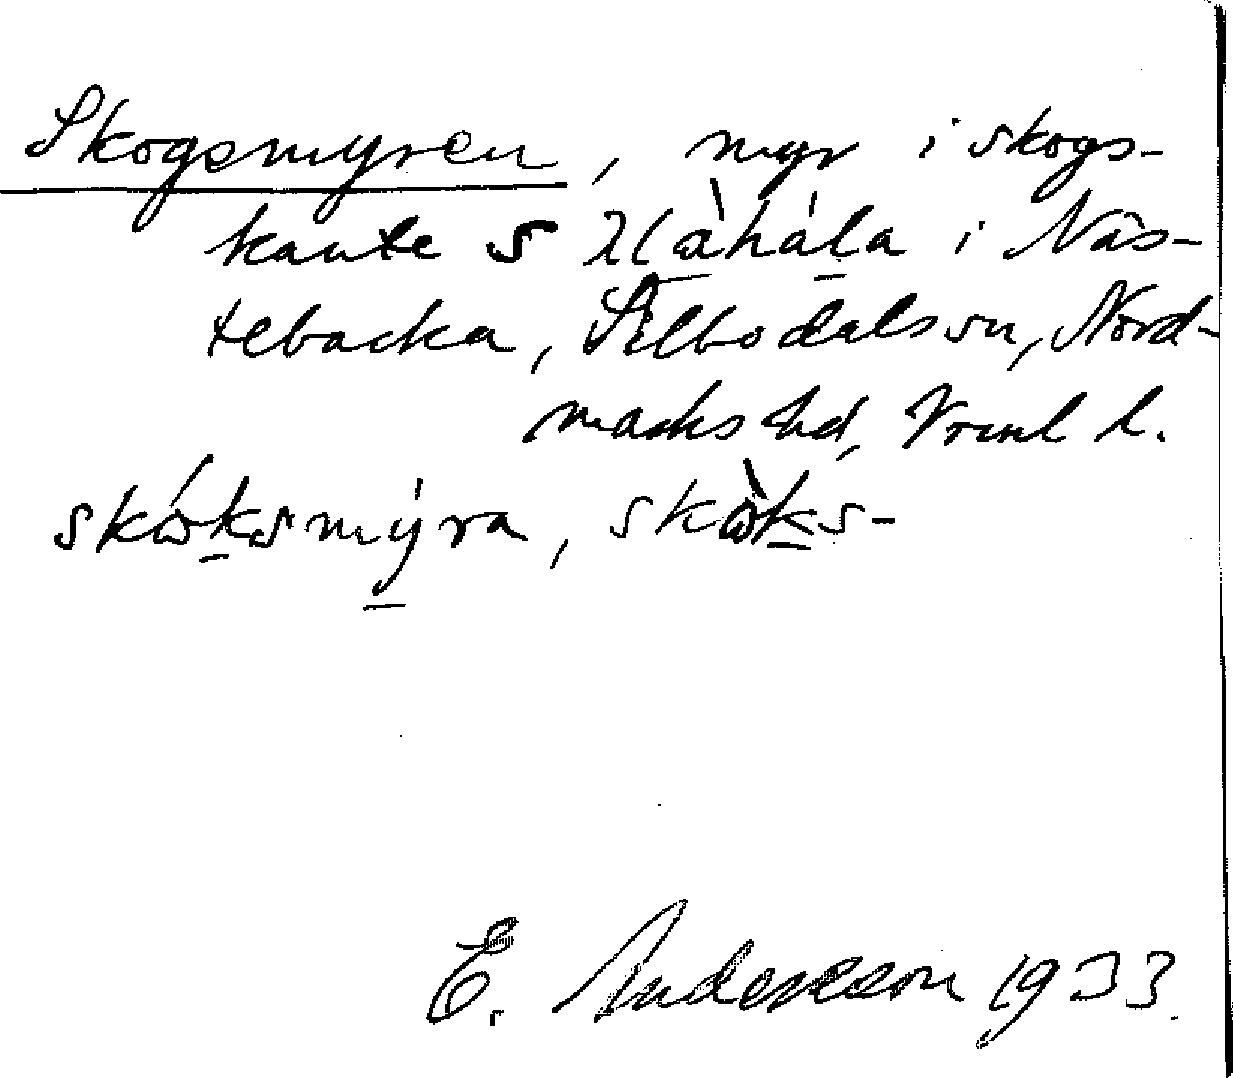 Skogsmyren, myr i skogs-
kante S i Näs-
tebacka, Silbodals sn, Nord-
marks hd, Vrml l.
skóksmýra, skòks-
E. Andersson 1933.